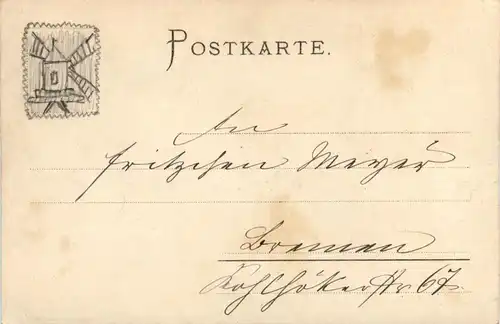 POSTKARTE.
An
Fritzchen Meyer
Bremen
Kohlhökerstr 67.